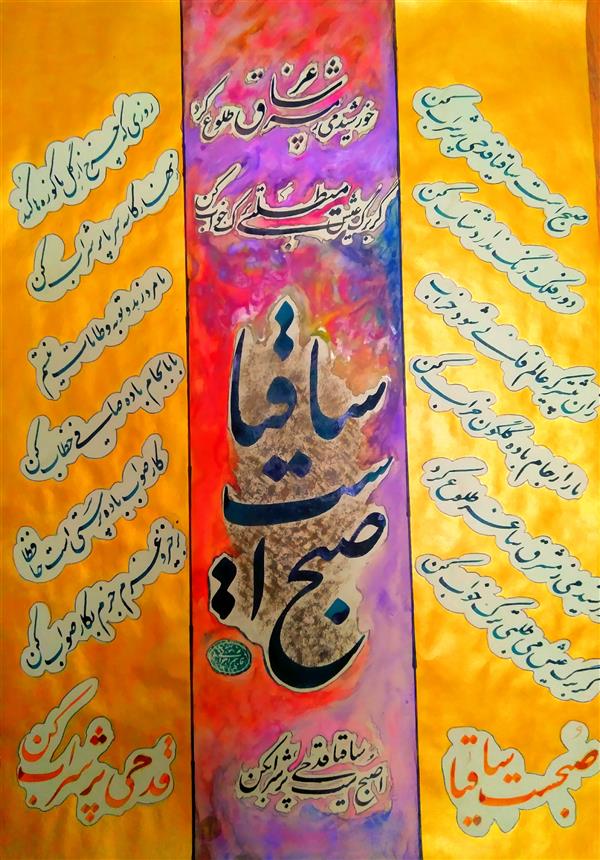 صبح است ساقیا قدحی پر شراب کن
دور فلک درنگ ندارد شتاب کن
زان پیشتر که عالم فانی شود خراب
ما را ز جام باده گلگون خراب کن
خورشید می ز مشرق ساغر طلوع کرد
گر برگ عیش می طلبی ترک خواب کن
صبحست ساقیا
خورشید می ز مشرق ساغر طلوع کرد
گر برگ عیش می طلبی ترک خواب کن
ساقیا
صبح است
صبح است ساقیا قدحی پر شراب کن
روزی که چرخ از گل ما کوزه ها کند
زنهار کاسه سر ما پر شراب کن
ما مرد زهد و توبه و طامات نیستیم
با ما بجام باده صافی خطاب کن
کار صواب باده پرستی است حافظا
برخیز و عزم جزم بکار صواب کن
قدحی پر شراب کن